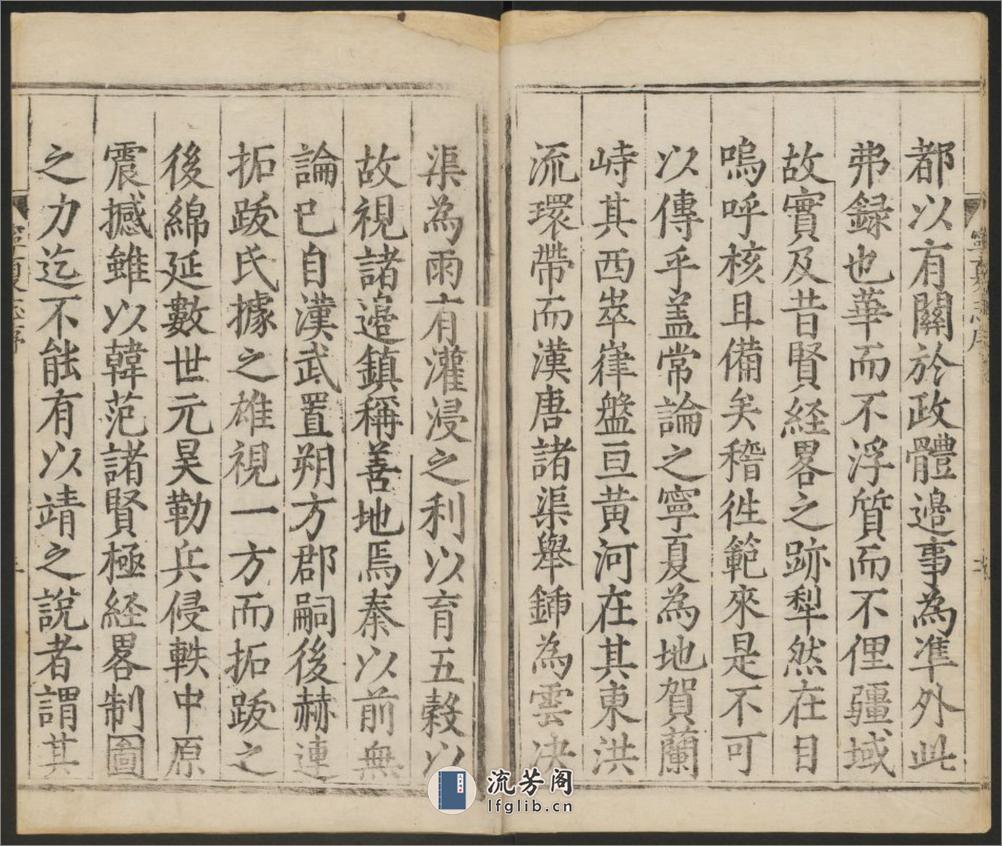 都以有關於政體邉事為凖外此
弗録也華而不浮質而不俚疆域
故實及昔賢経畧之跡犁然在目
嗚呼核且備矣稽徃範來是不可
以傳乎盖常論之寧夏為地賀蘭
峙其西崒嵂盤亘黄河在其東洪
流環帶而漢唐諸渠舉鍤為雲决
渠為雨有灌浸之利以育五糓以
故視諸邉鎮稱善地焉秦以前無
論已自漢武置朔方郡嗣後赫連
拓跋氏據之雄視一方而拓跋之
後綿延數世元昊勒兵侵軼中原
震撼雖以韓范諸賢極経畧制圖
之力迄不能有以靖之說者謂其
寧夏志序
寧夏志序
流芳阁
lfglib.cn